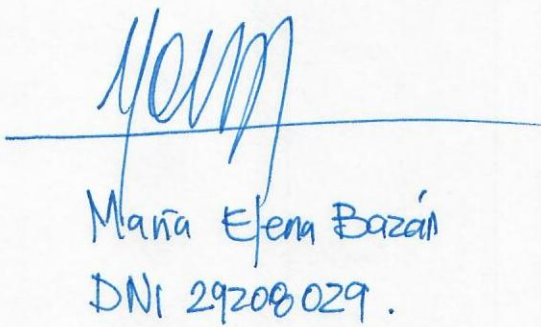 María Elena Bazán
DNI 29208029.